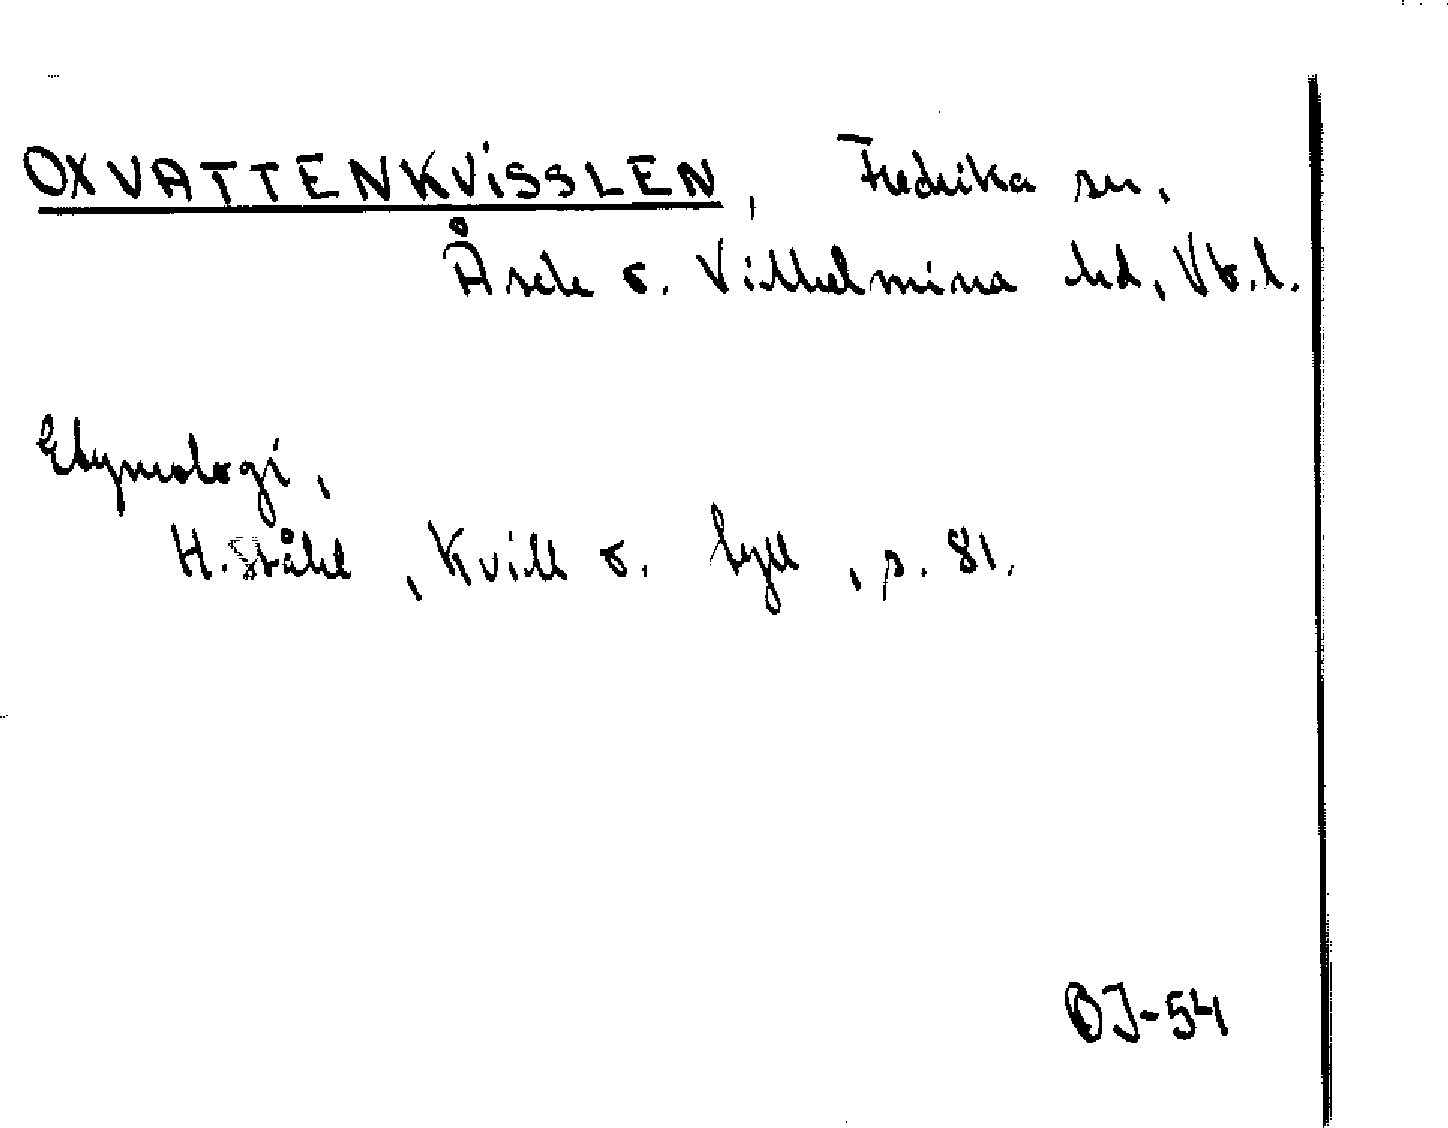 OXVATTENKVISSLEN, Fredrika sn,
Åsele o. Vilhelmina hd, Vb.l.
Etymologi,
H. Ståhl, Kvill o. tyll, p. 81.
OJ-54